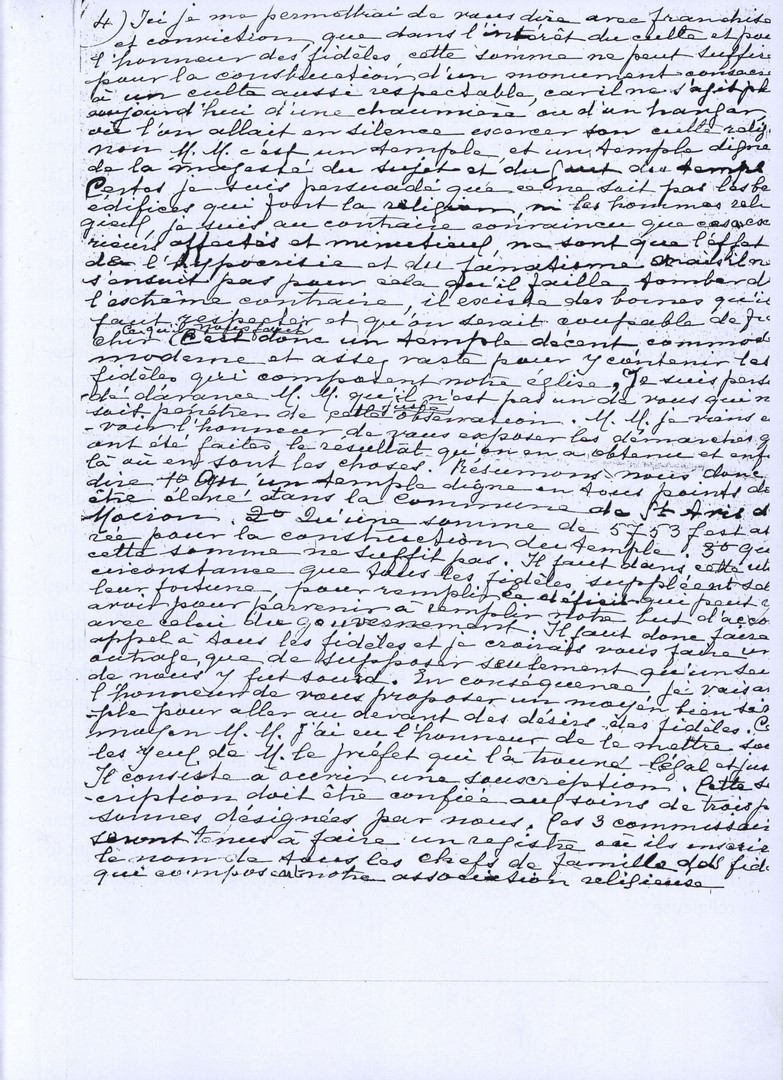 4) Ici je me permettrai de vous dire avec franchise
et conviction, que dans l'intérêt du culte et pou
l'honneur des fidèles, cette somme ne peut suffire
pour la construction d'un monument consacré
à un culte aussi respectable, car il ne s'agit pl
aujourd'hui d'une chaumière ou d'un hangar,
où l'on allait en silence exercer son culte relig
non M. M. c'est un temple, et un temple digne
de la majesté du sujet et du gout du temps
Certes je suis persuadé que ce ne soit pas les be
édifices qui font la religion, ni les hommes reli
gieux, je suis au contraire convaincu que ces ex
rieurs affectés et minutieux, ne sont que l'effet
de l'hypocrisie et du fanatisme mais il n
s'ensuit pas pour cela qu'il faille tomber d
l'eschème contraire, il existe des bornes qu'il
faut respecter et qu'on serait coupable de fr
chir (Ce qu'il nous faut C'est donc un temple décent commod
moderne et assez vaste pour y contenir les
fidèles qui composent notre église, Je suis pers
dé d'avance M. M. qu'il n'est pas un de vous qui n
soit pénétrer de cette juste observation. M. M. je viens e
-voir l'honneur de vous exposer les démarches q
ont été faites le résultat qu'on en a obtenu et enf
là où en sont les choses. Résumons-nous donc
dire 1° Qu'un temple digne en tous points do
être élevé dans la commune de St Avis d
Moiron. 2° Qu'une somme de 5753 f est at
rée pour la construction du temple, 3° que
cette somme ne suffit pas. Il faut dans cette ut
circonstance que tous les fidèles suppléent se
leur fortune, pour remplir ce déficit qui peut y
avoir pour parvenir à remplir notre but d'acco
avec celui du gouvernement. Il faut donc faire
appel à tous les fidèles et je croirais vous faire un
outrage, que de supposer seulement qu'un seu
de nous y fut sourd. En conséquence, je vais a
l'honneur de vous proposer un moyen bien sim
-ple pour aller au devant des désirs des fidèles. C
moyen M. M. j'ai eu l'honneur de le mettre sou
les yeux de M. le préfet qui l'a trouvé légal et jus
Il consiste à ouvrir une souscription. Cette s
-cription doit être confiée aux soins de trois p
sonnes désignées par nous. Les 3 commissair
seront tenus à faire un registre où ils inscrir
le nom de tous les chefs de famille des fid
qui composent notre association religieuse